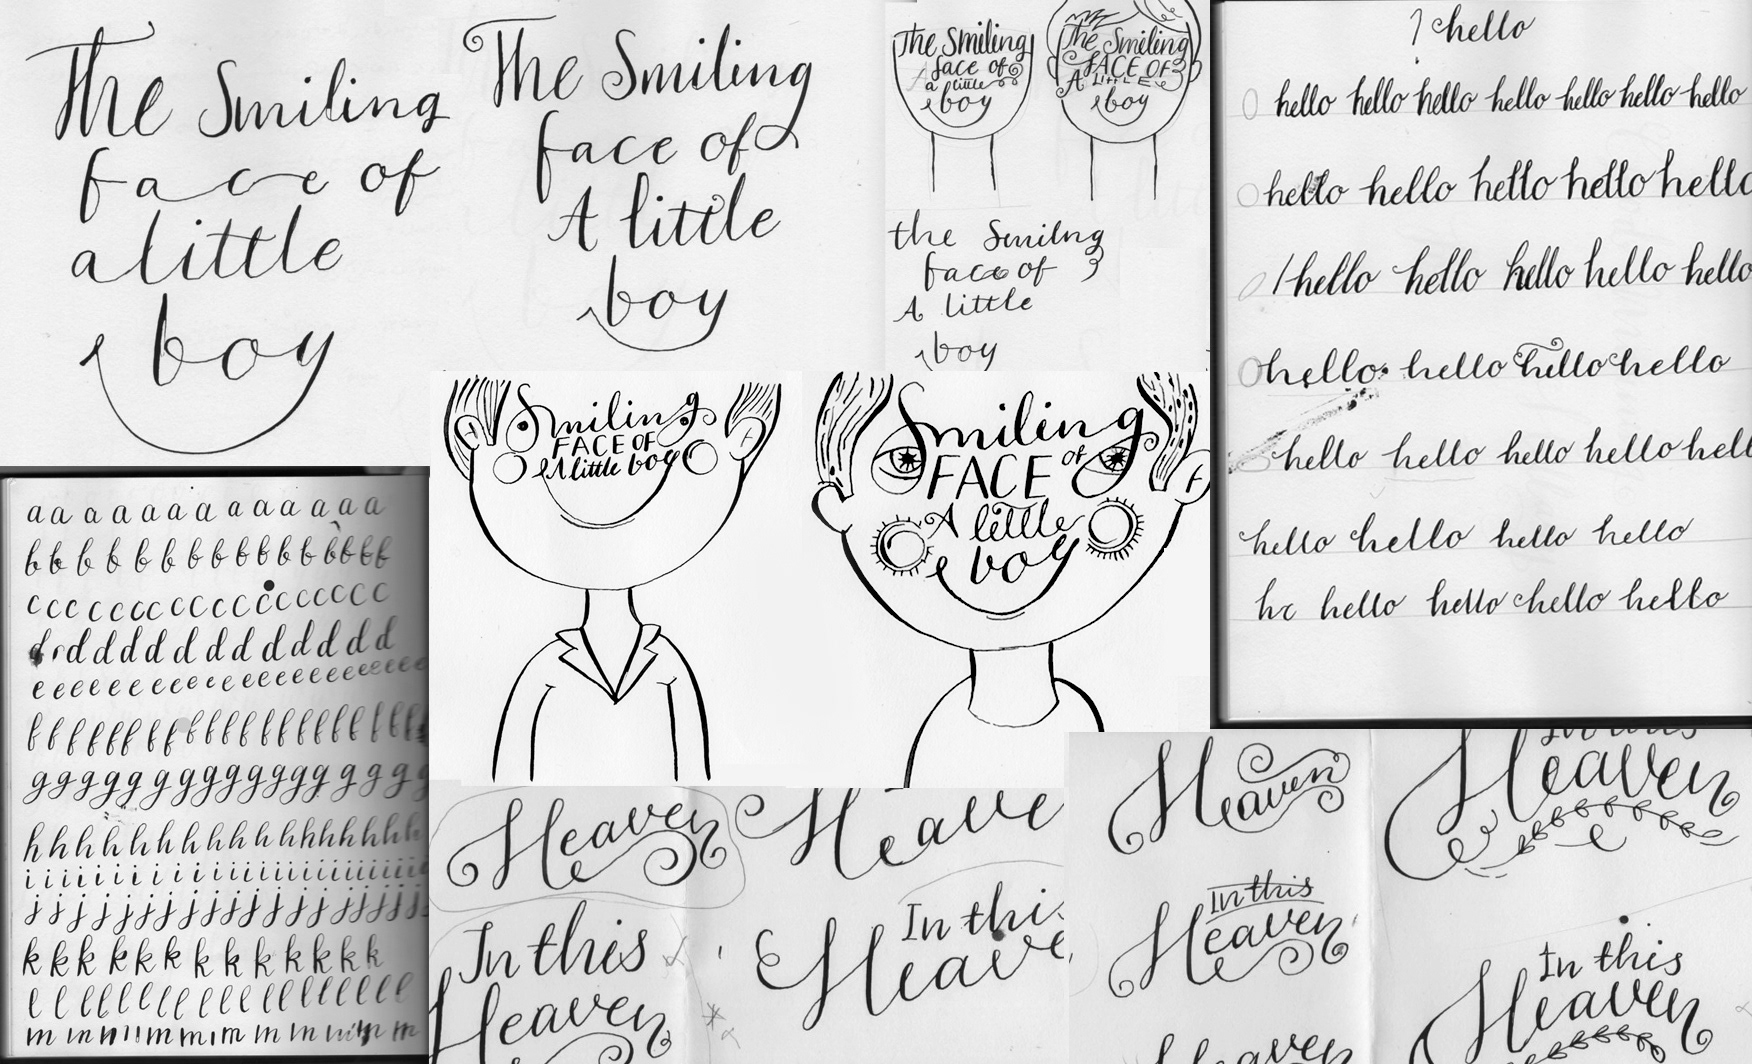 The Smiling
face of
a little
boy
The Smiling
face of
A little
boy
The Smiling
face of
a little
boy
The Smiling
FACE OF
A LITTLE
boy
the Smilng
face of
A little
boy
? hello
hello hello hello hello hello hello hello
hello hello hello hello hello
hello hello hello hello hello
hello hello hello hello
hello hello hello hello hell
hello hello hello hello
he hello hello hello hello
Smiling
FACE OF
A little boy
Smiling
FACE of
A little
boy
a a a a a a a a a a a a a
b b b b b b b b b b b b b b
c c c c c c c c c c c c c c c c
d r d d d d d d d d d d d d
e e e e e e e e e e e e e e e e e e e
f f f f f f f f f f f f f f f f f f
g g g g g g g g g g g g g g g g g
h h h h h h h h h h h h h h h h
i i i i i i i i i i i i i i i i i i i i
j j j j j j j j j j j j j j j j j j
k k k k k k k k k k k k k
l l l l l l l l l l l l l l l l
m m m m m m m m m m m
Heaven
In this
Heaven
Heave
In thi
Heave
Heaven
In this
Heaven
Heaven
In this
Heaven
In this
Heaven